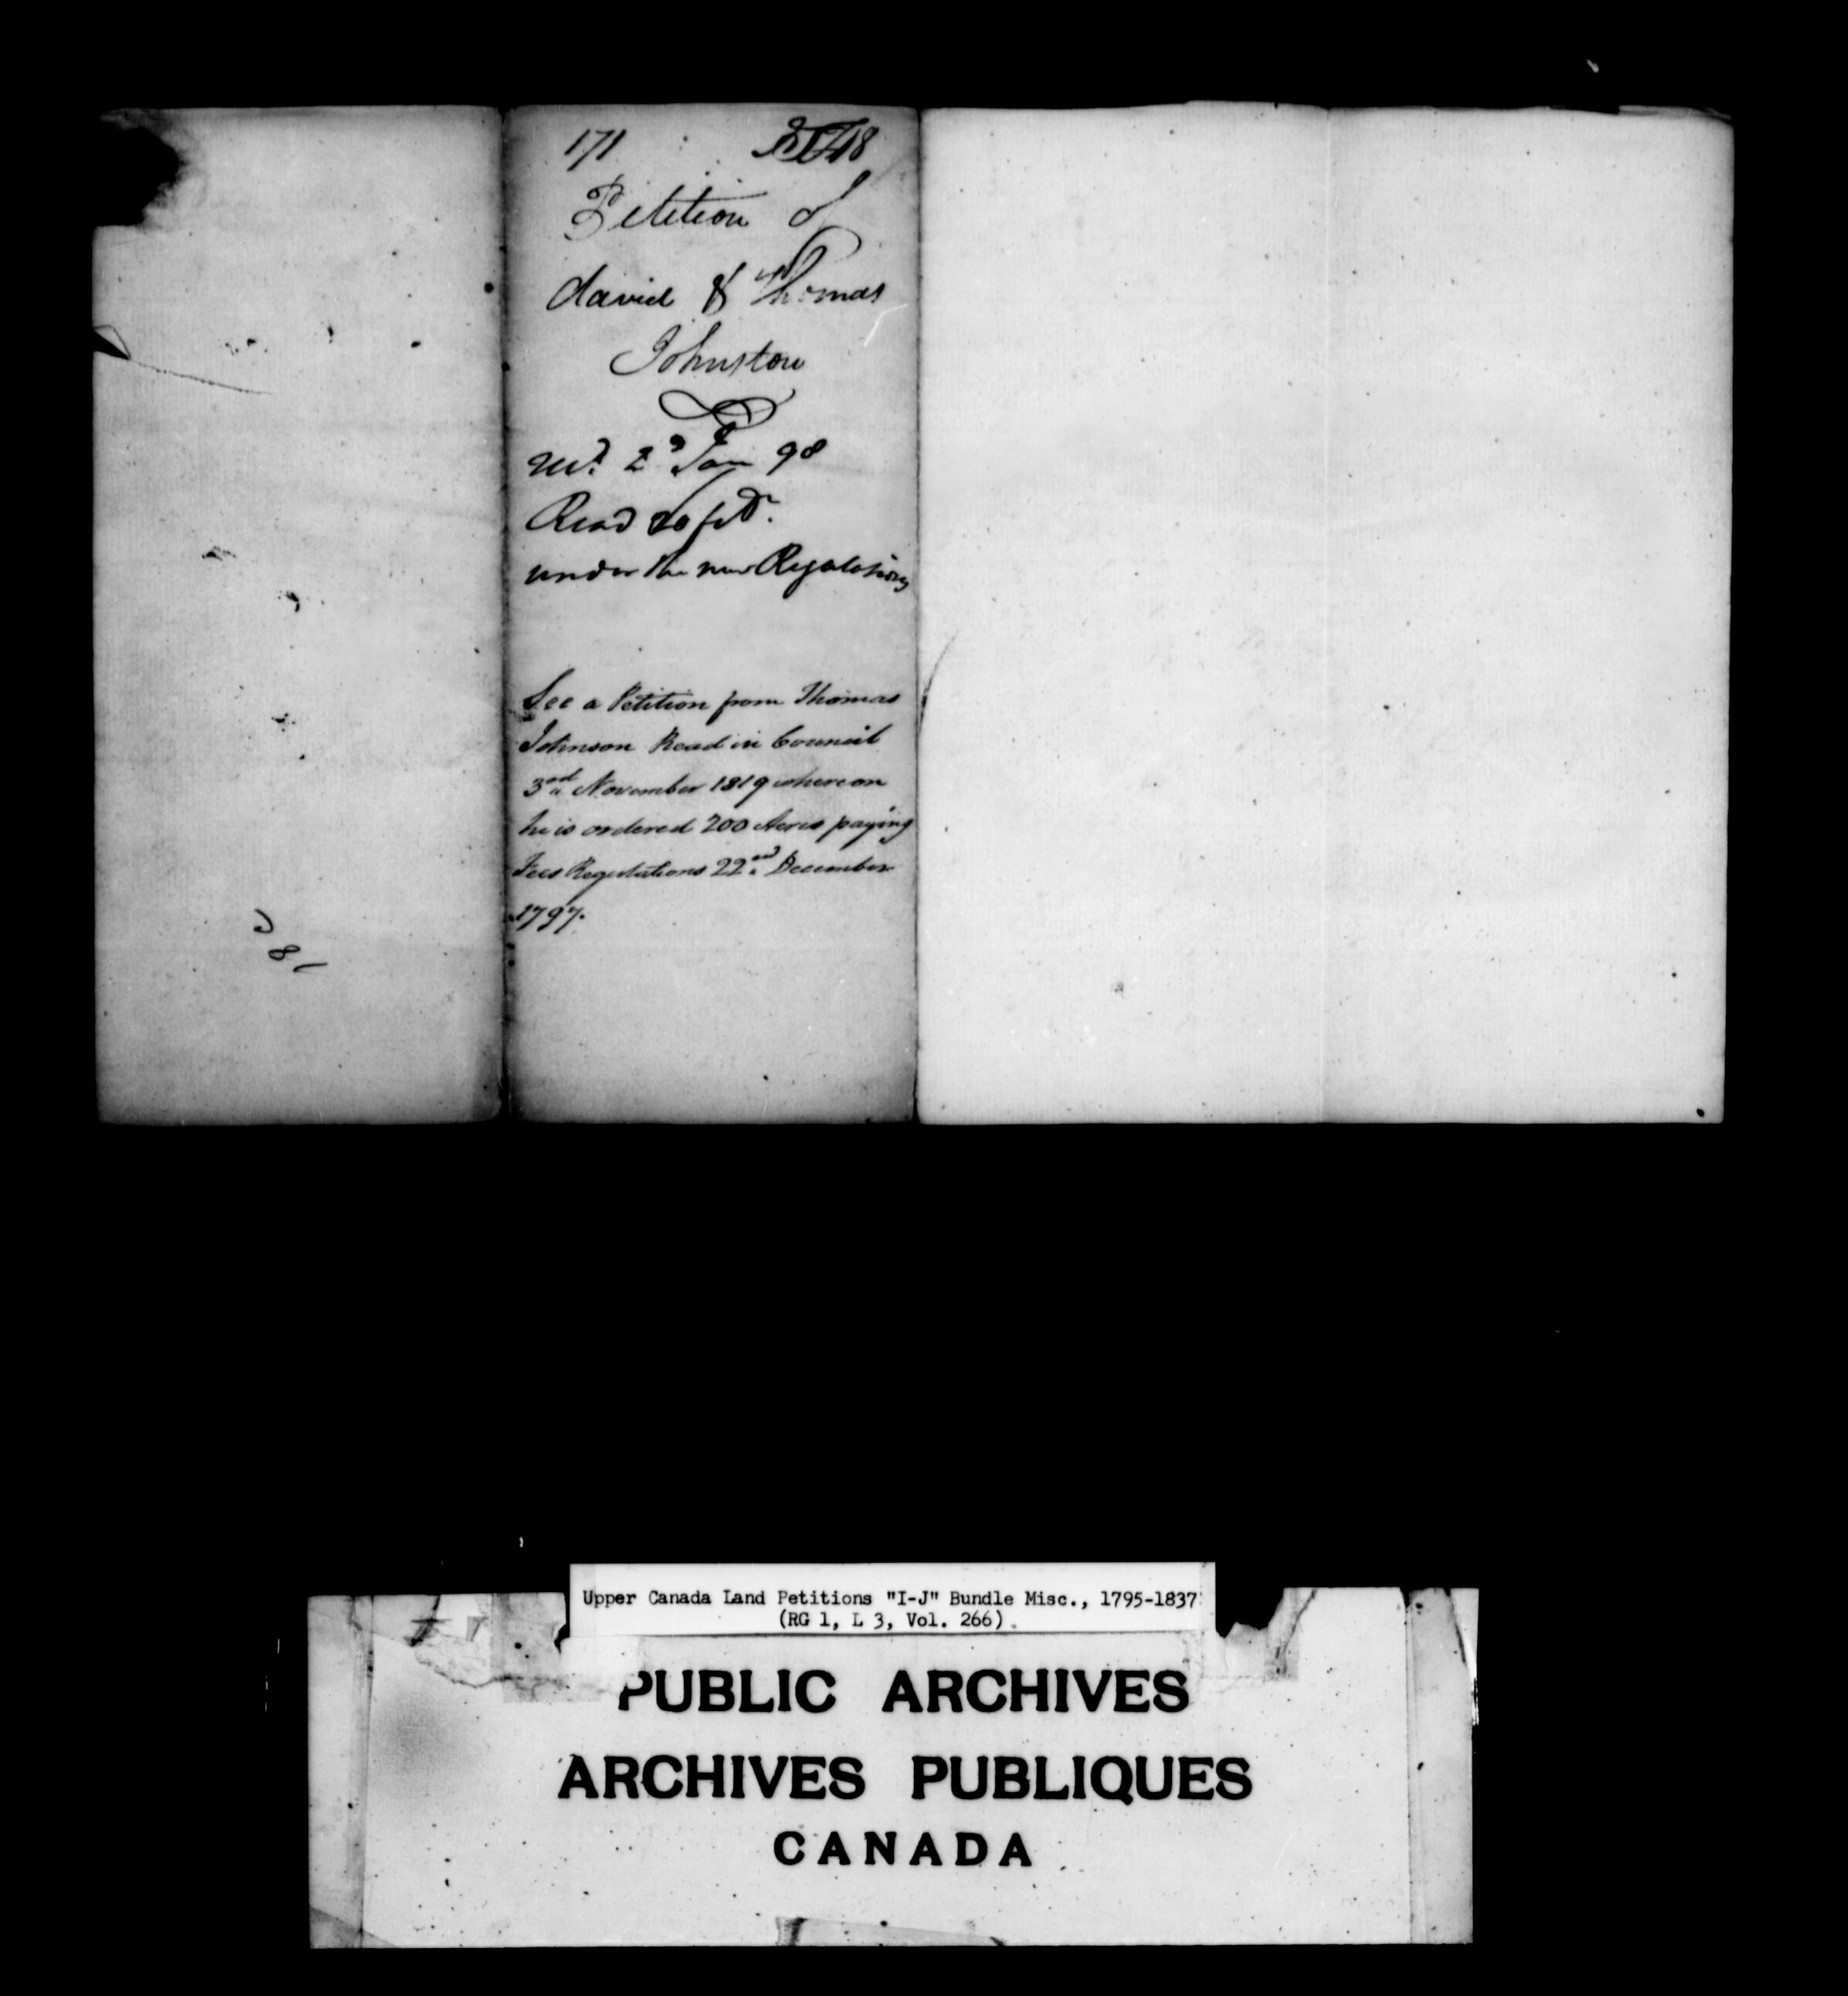 171 18
Petition of
david & Thomas
Johnston
Recd. 2d Jan 98
Read 20 febr.
under the new Regulations
See a Petition from Thomas
Johnson Read in Council
3rd November 1819 whereon
he is ordered 200 Acres paying
Fees Regulations 22nd December
1797.
Upper Canada Land Petitions "I-J" Bundle Misc., 1795-1837
(RG 1, L 3, Vol. 266)
PUBLIC ARCHIVES
ARCHIVES PUBLIQUES
CANADA